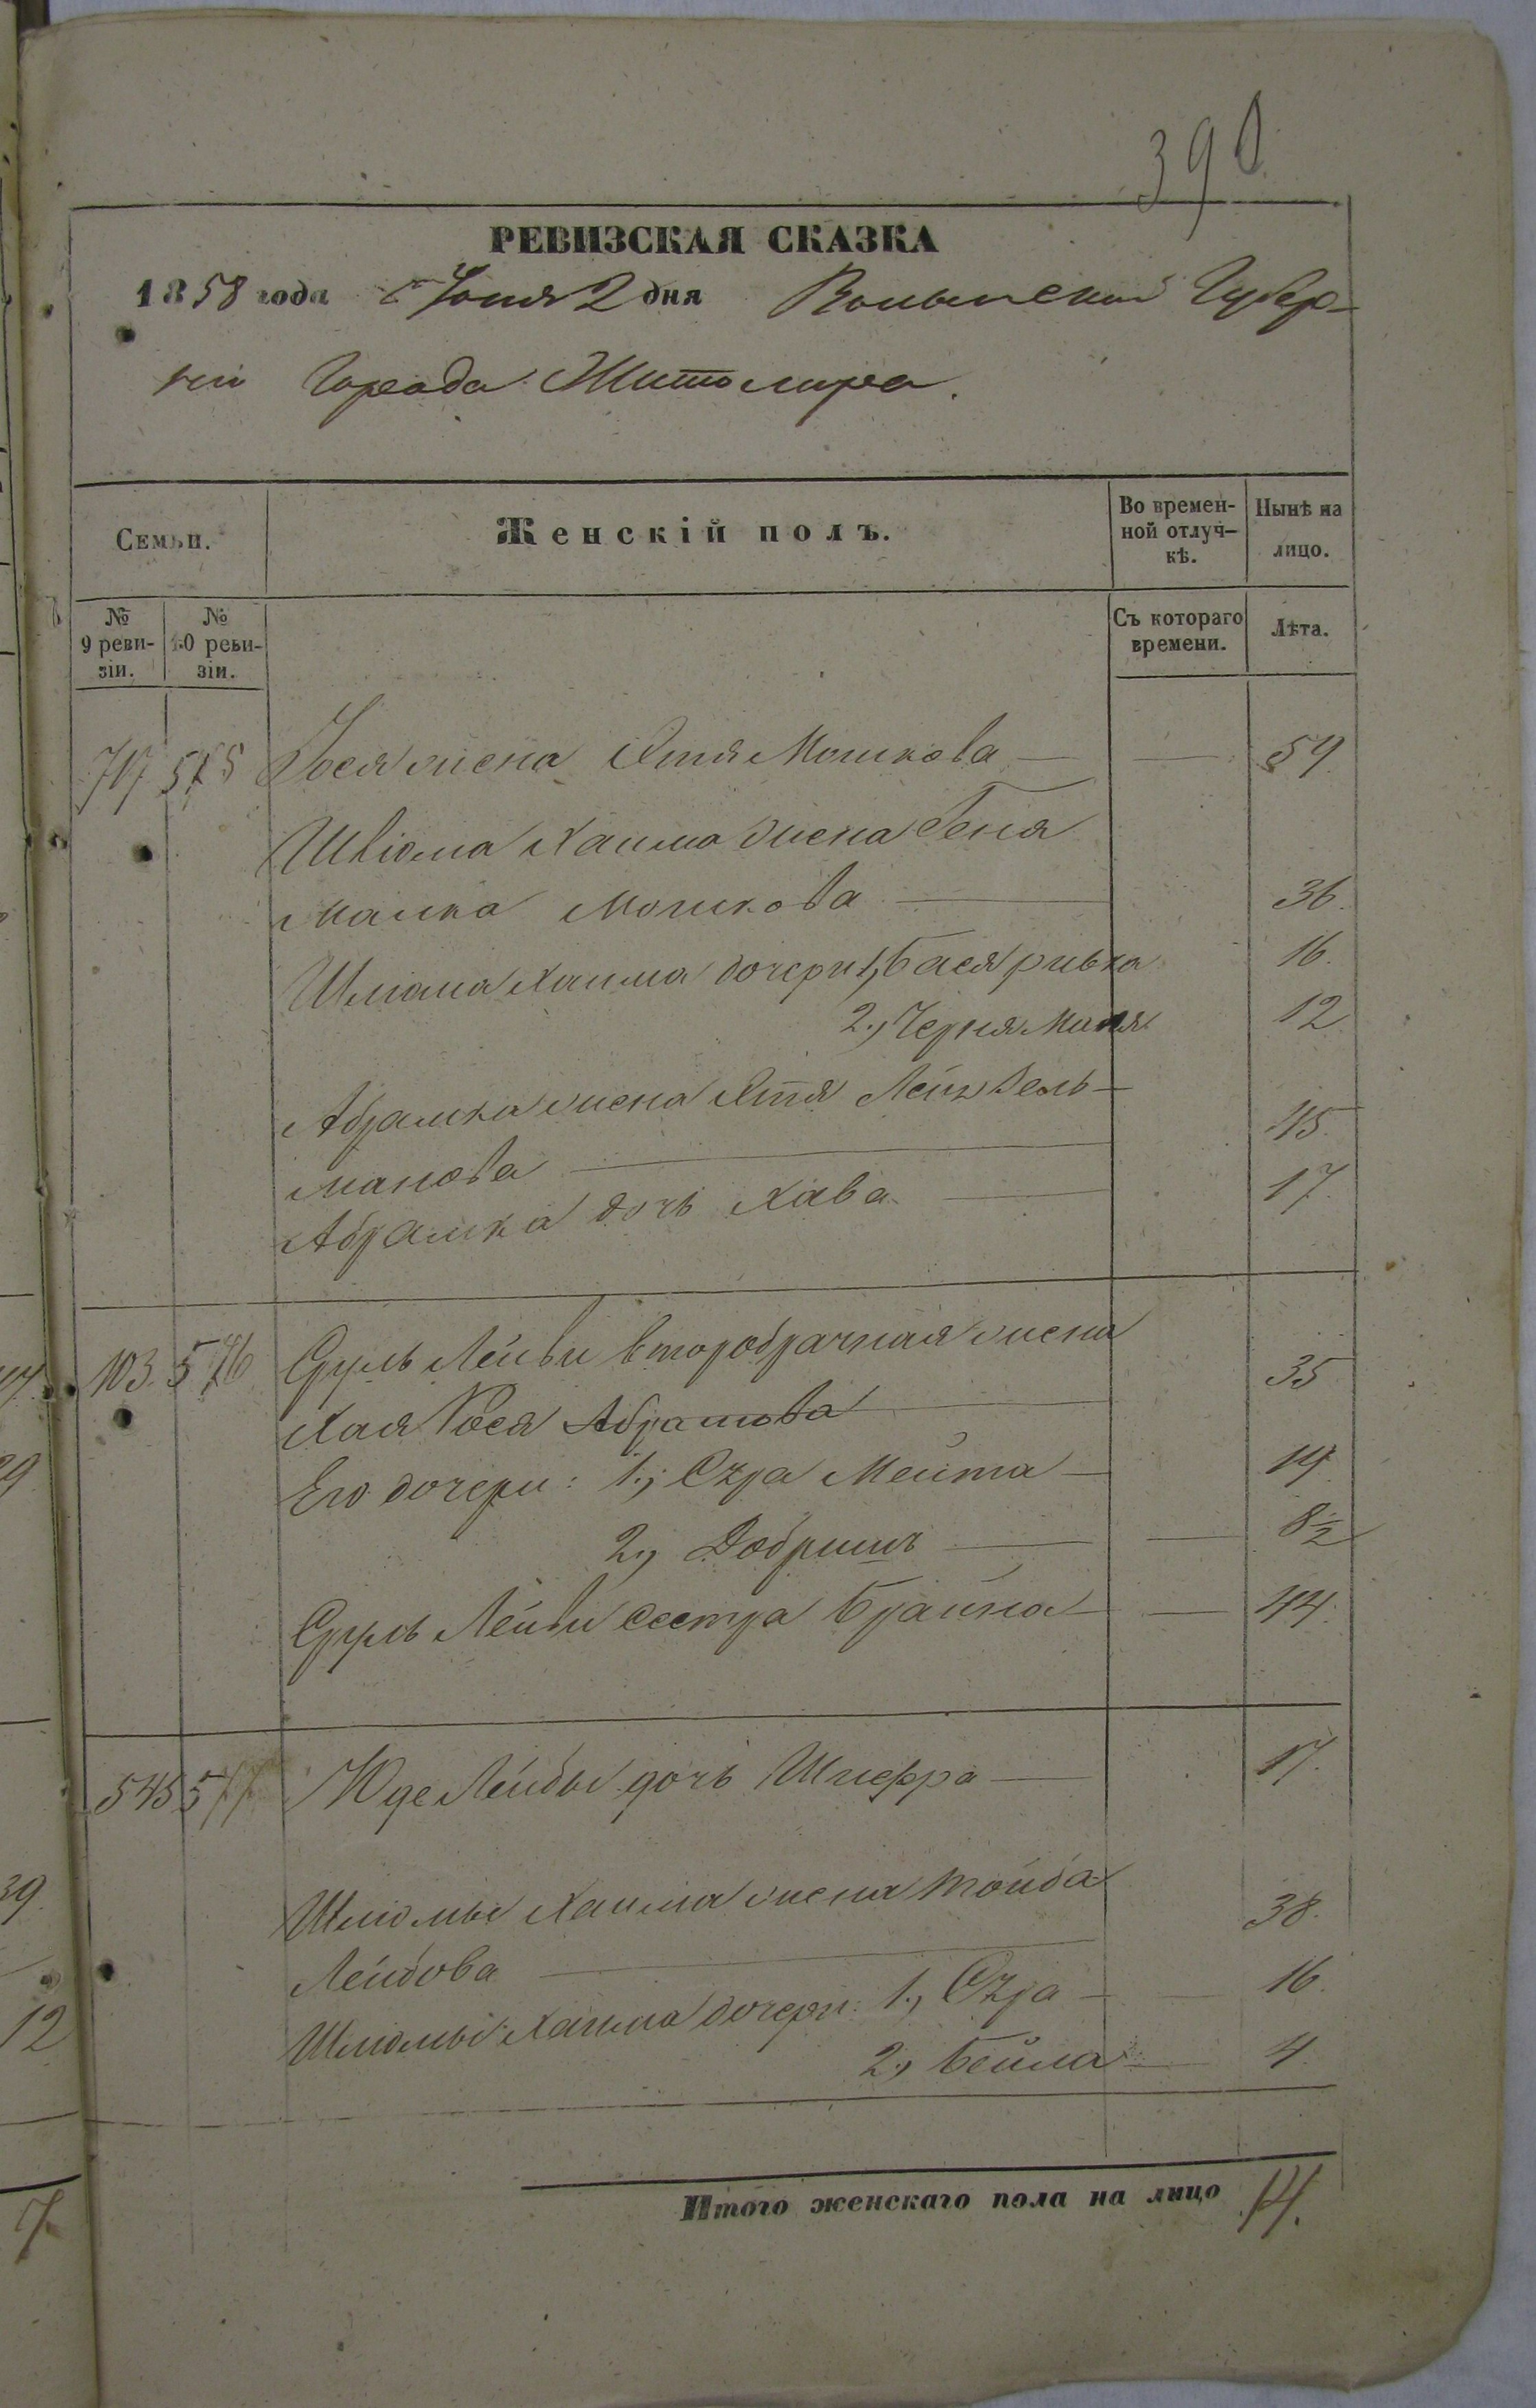 390
РЕВИЗСКАЯ СКАЗКА
1858 года Іюня 2 дня Волынской Губер-
ніи Города Житомира.
Семьи.
Женскій полъ.
Во времен-
ной отлуч-
кѣ.
Нынѣ на
лицо.
№
9 реви-
зіи.
№
10 реви-
зіи.
Съ котораго
времени.
Лѣта.
717 575 Іося жена Этя Мошкова — — 59
Шліома Хаима жена Геня
Малка Мошкова — 36.
Шліома Хаима дочери 1, Бася ривка 16.
2., Черня Маля 12
Абрамка жена Этя Лейзель-
манова — 45.
Абрамка дочь Хава — 17.
103. 576 Сруль Лейби второбрачная жена
Хая Юося Абрамова — 35
Его дочери: 1., Сура Мейта — 14
2., Добришъ — — 8½
Сруль Лейби сестра Брайна — — 44.
545 577 Юде Лейбы дочь Шифра — 17.
Шліомы Хаима жена Тойба
Лейбова — 38.
Шліомы Хаима дочери: 1., Сура — — 16.
2., Бейла — 4.
Итого женскаго пола на лицо 14.